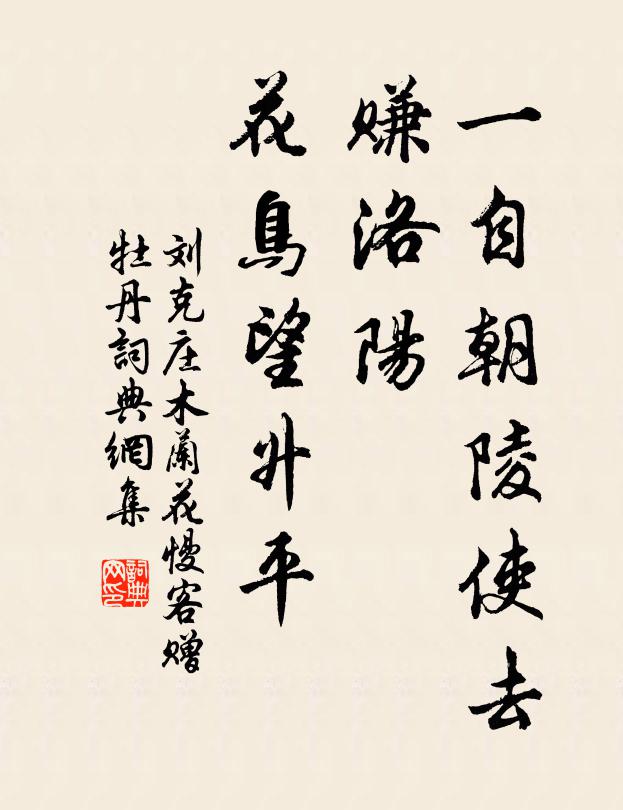 一自朝陵使去
赚洛陽
花鳥望升平
刘克庄木蘭花慢客赠
牡丹詞典網集
詞典网印